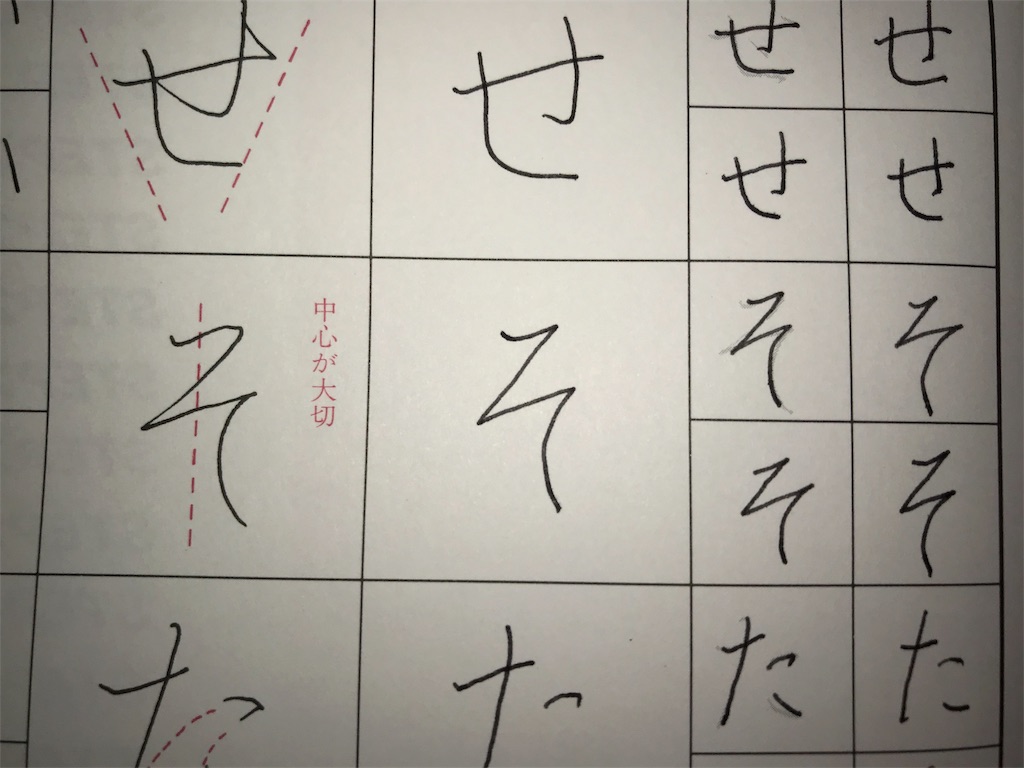 せ せ せ せ
せ せ
そ 中心が大切 そ そ そ
そ そ
た た た た